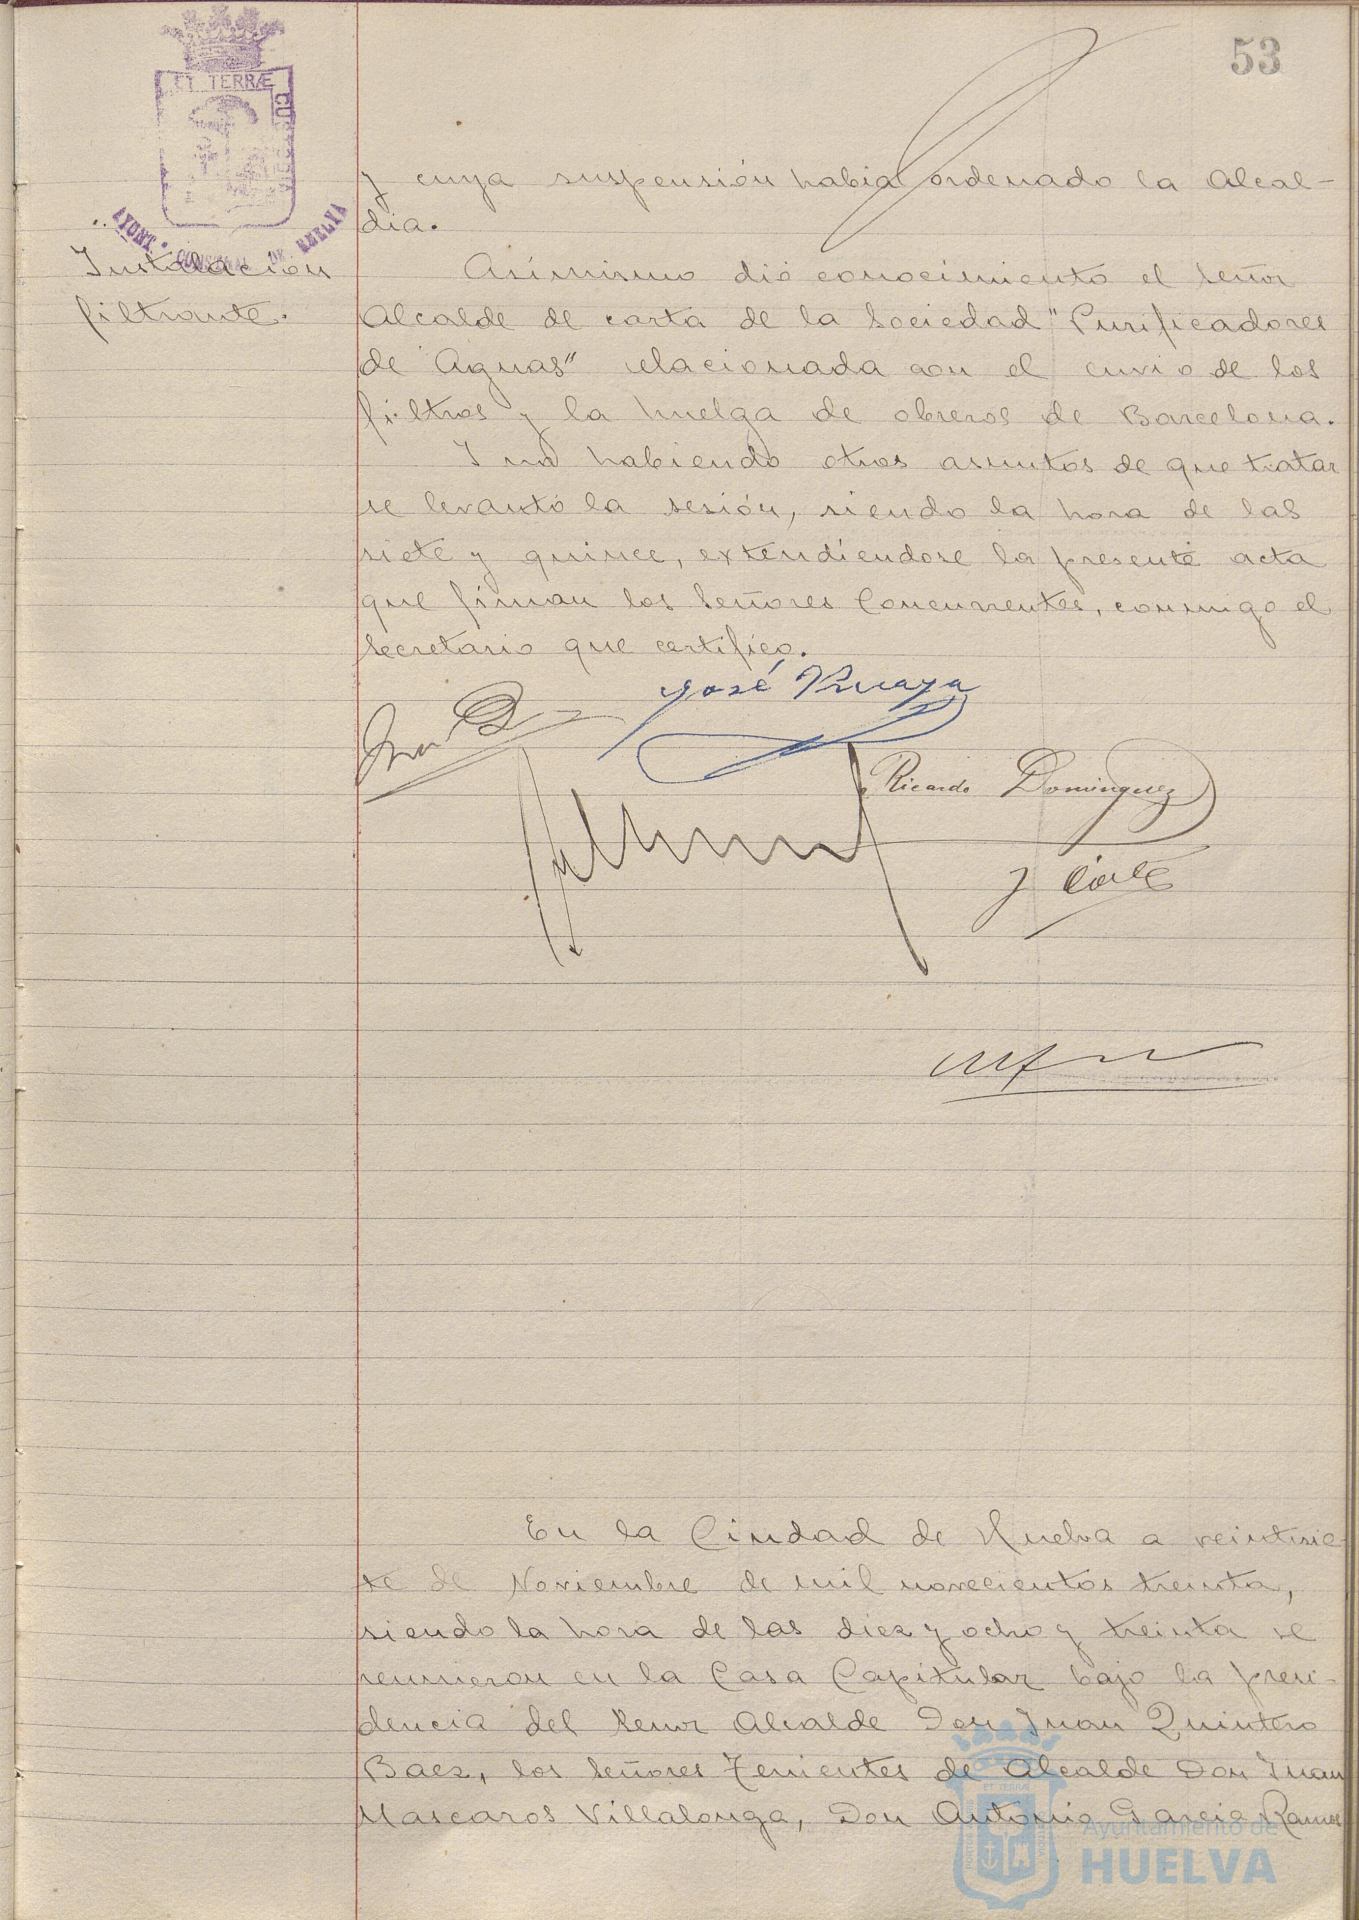 53
ET TERRÆ
AYUNT. CONSTNAL DE HUELVA
y cuya suspensión habia ordenado la Alcal-
dia.
Instalacion
filtrante.
Asímismo dió conocimiento el señor
Alcalde de carta de la Sociedad "Purificadores
de Aguas" relacionada con el envio de los
filtros y la huelga de obreros de Barcelona.
Y no habiendo otros asuntos de que tratar
se levantó la sesión, siendo la hora de las
siete y quince, extendiendose la presente acta
que firman los Señores Concurrentes, conmigo el
Secretario que certifico.
José
Ricardo Dominguez
En la Ciudad de Huelva a veintisie-
te de Noviembre de mil novecientos treinta,
siendo la hora de las diez y ocho y treinta se
reunieron en la Casa Capitular bajo la presi-
dencia del Señor Alcalde Don Juan Quintero
Baez, los Señores Tenientes de Alcalde Don Juan
Mascaros Villalonga, Don Antonio Garcia Ramos
Ayuntamiento de
HUELVA